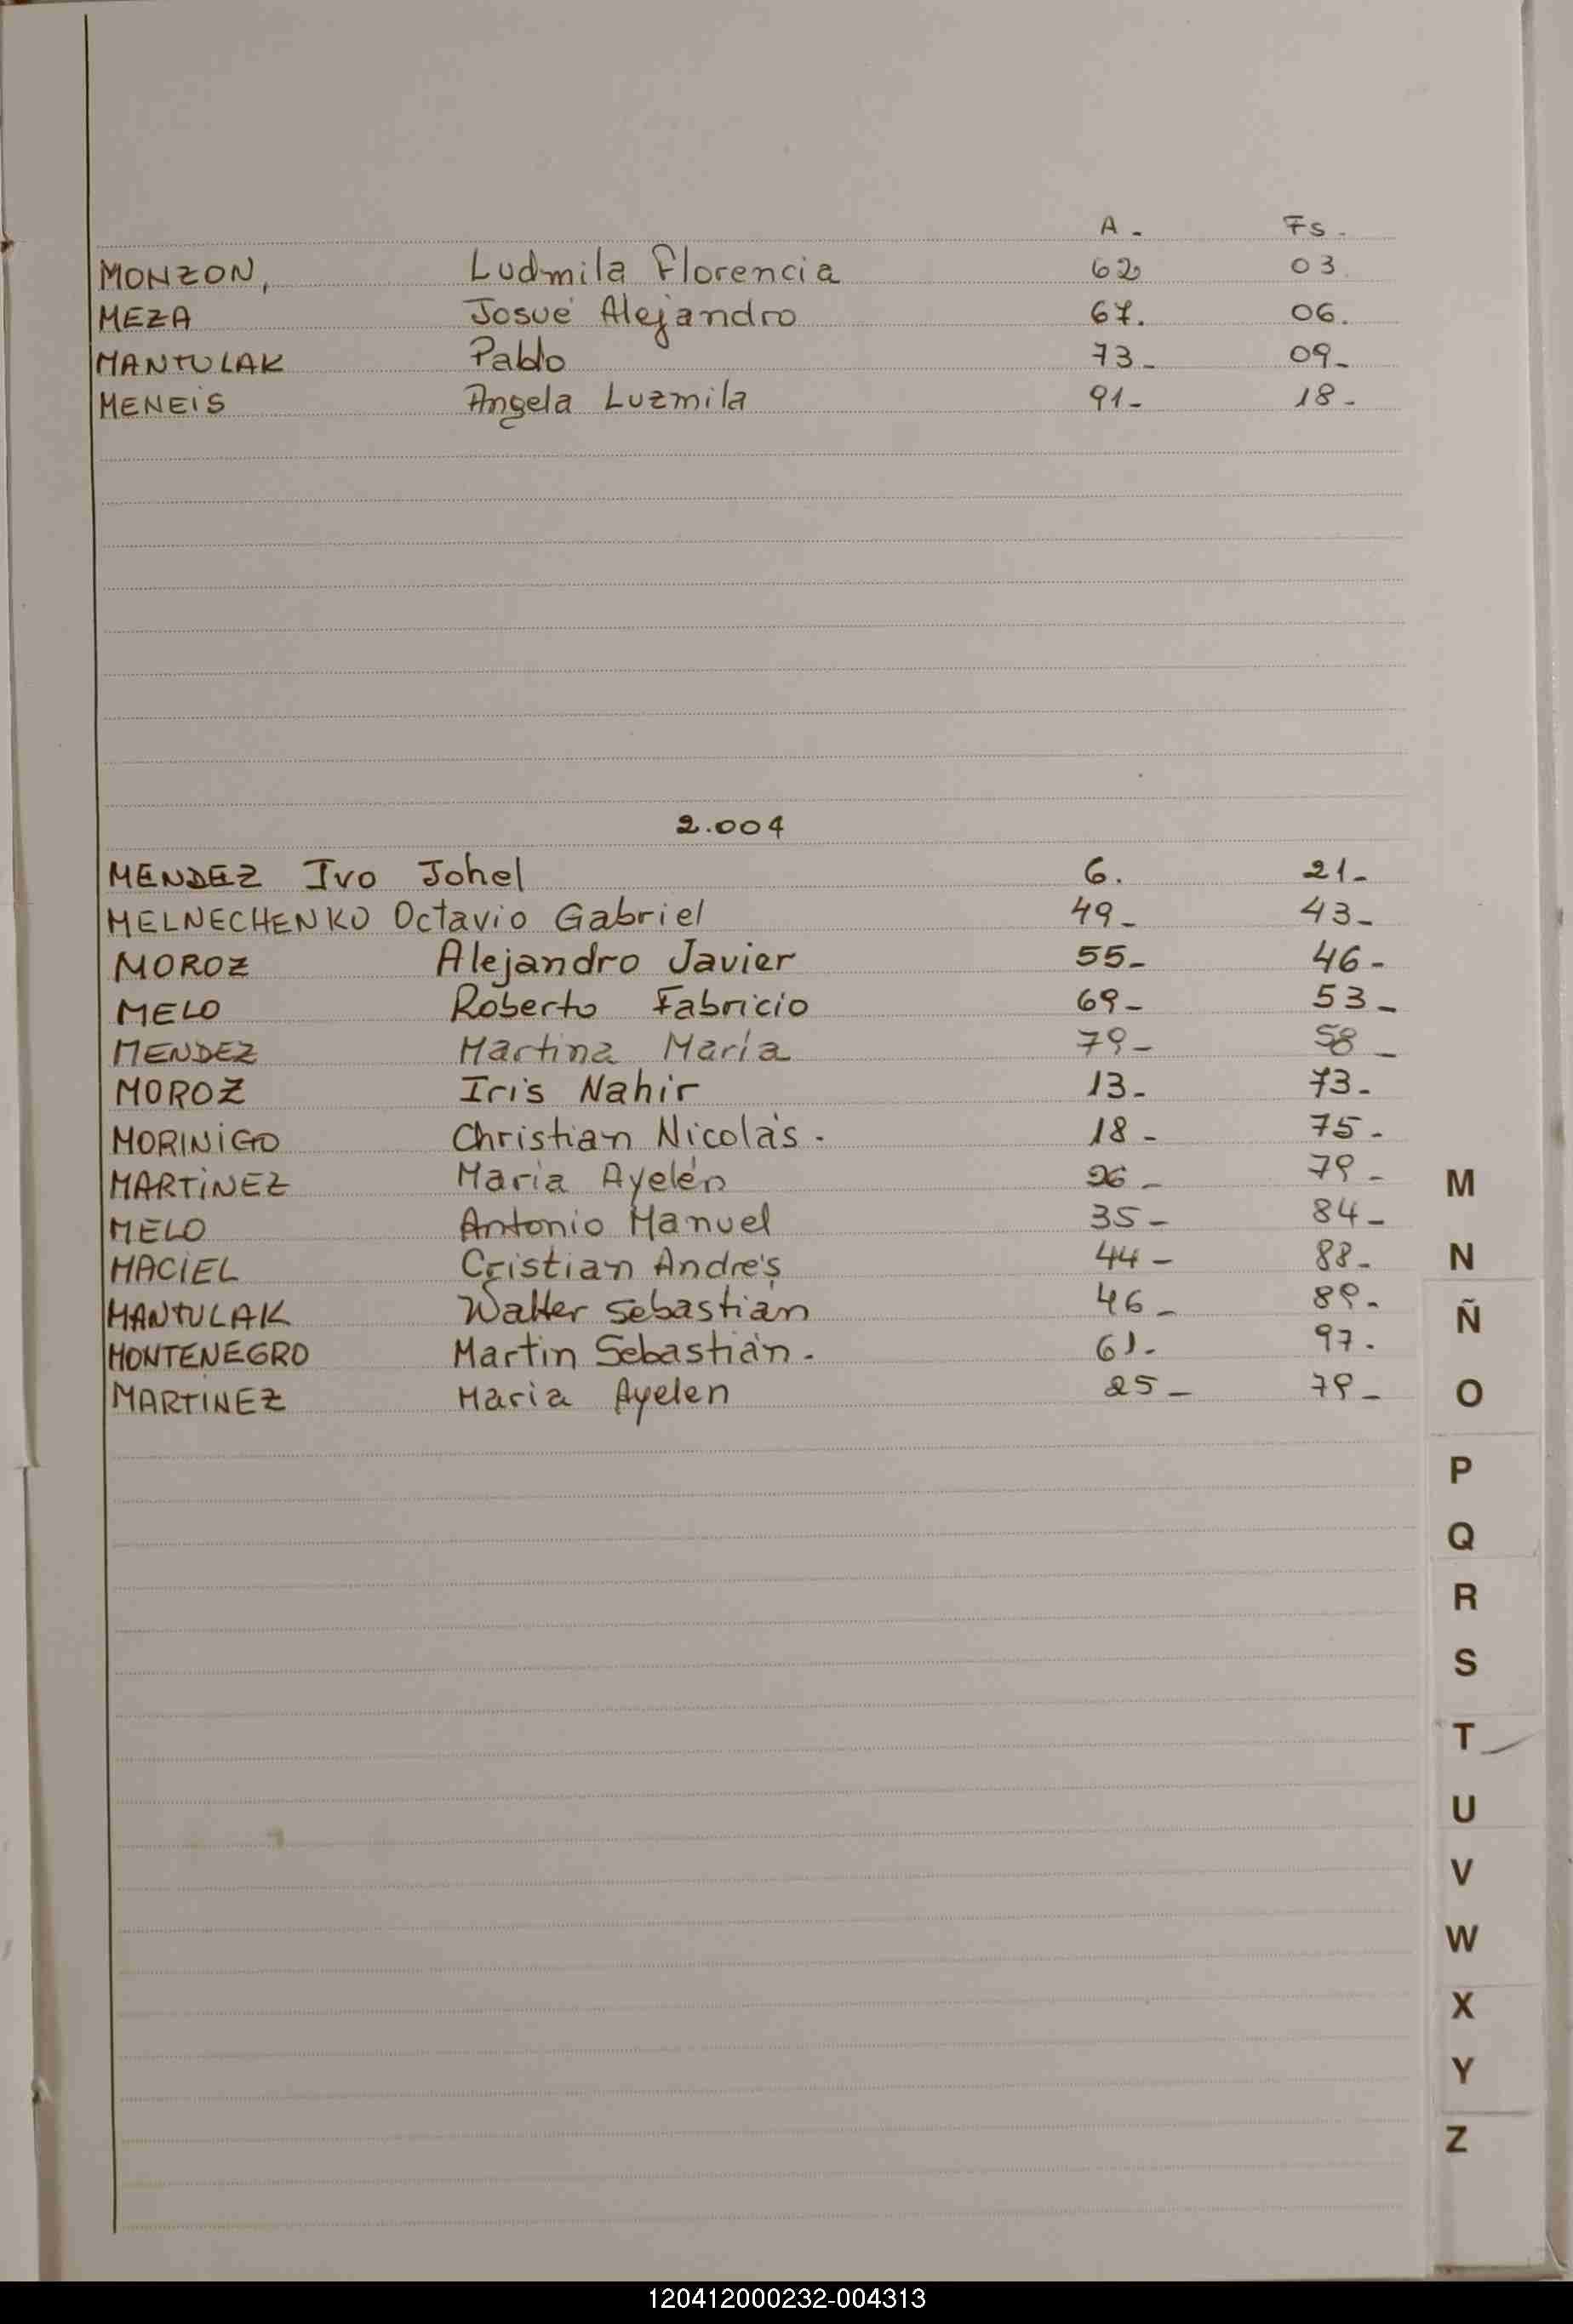 A. Fs.
MONZON, Ludmila Florencia 62 03
MEZA Josué Alejandro 67. 06.
MANTULAK Pablo 73- 09-
MENEIS Angela Luzmila 91- 18-
2.004
MENDEZ Ivo Johel 6. 21-
MELNECHENKO Octavio Gabriel 49- 43-
MOROZ Alejandro Javier 55- 46-
MELO Roberto Fabricio 69- 53-
MENDEZ Martina María 79- 58-
MOROZ Iris Nahir 13- 73-
MORINIGO Christian Nicolás. 18- 75-
MARTINEZ Maria Ayelén 26- 79-
MELO Antonio Manuel 35- 84-
MACIEL Cristian Andrés 44- 88-
MANTULAK Walter Sebastián 46- 89-
MONTENEGRO Martin Sebastián. 61- 97.
MARTINEZ Maria Ayelen 25- 79-
M
N
Ñ
O
P
Q
R
S
T
U
V
W
X
Y
Z
120412000232-004313